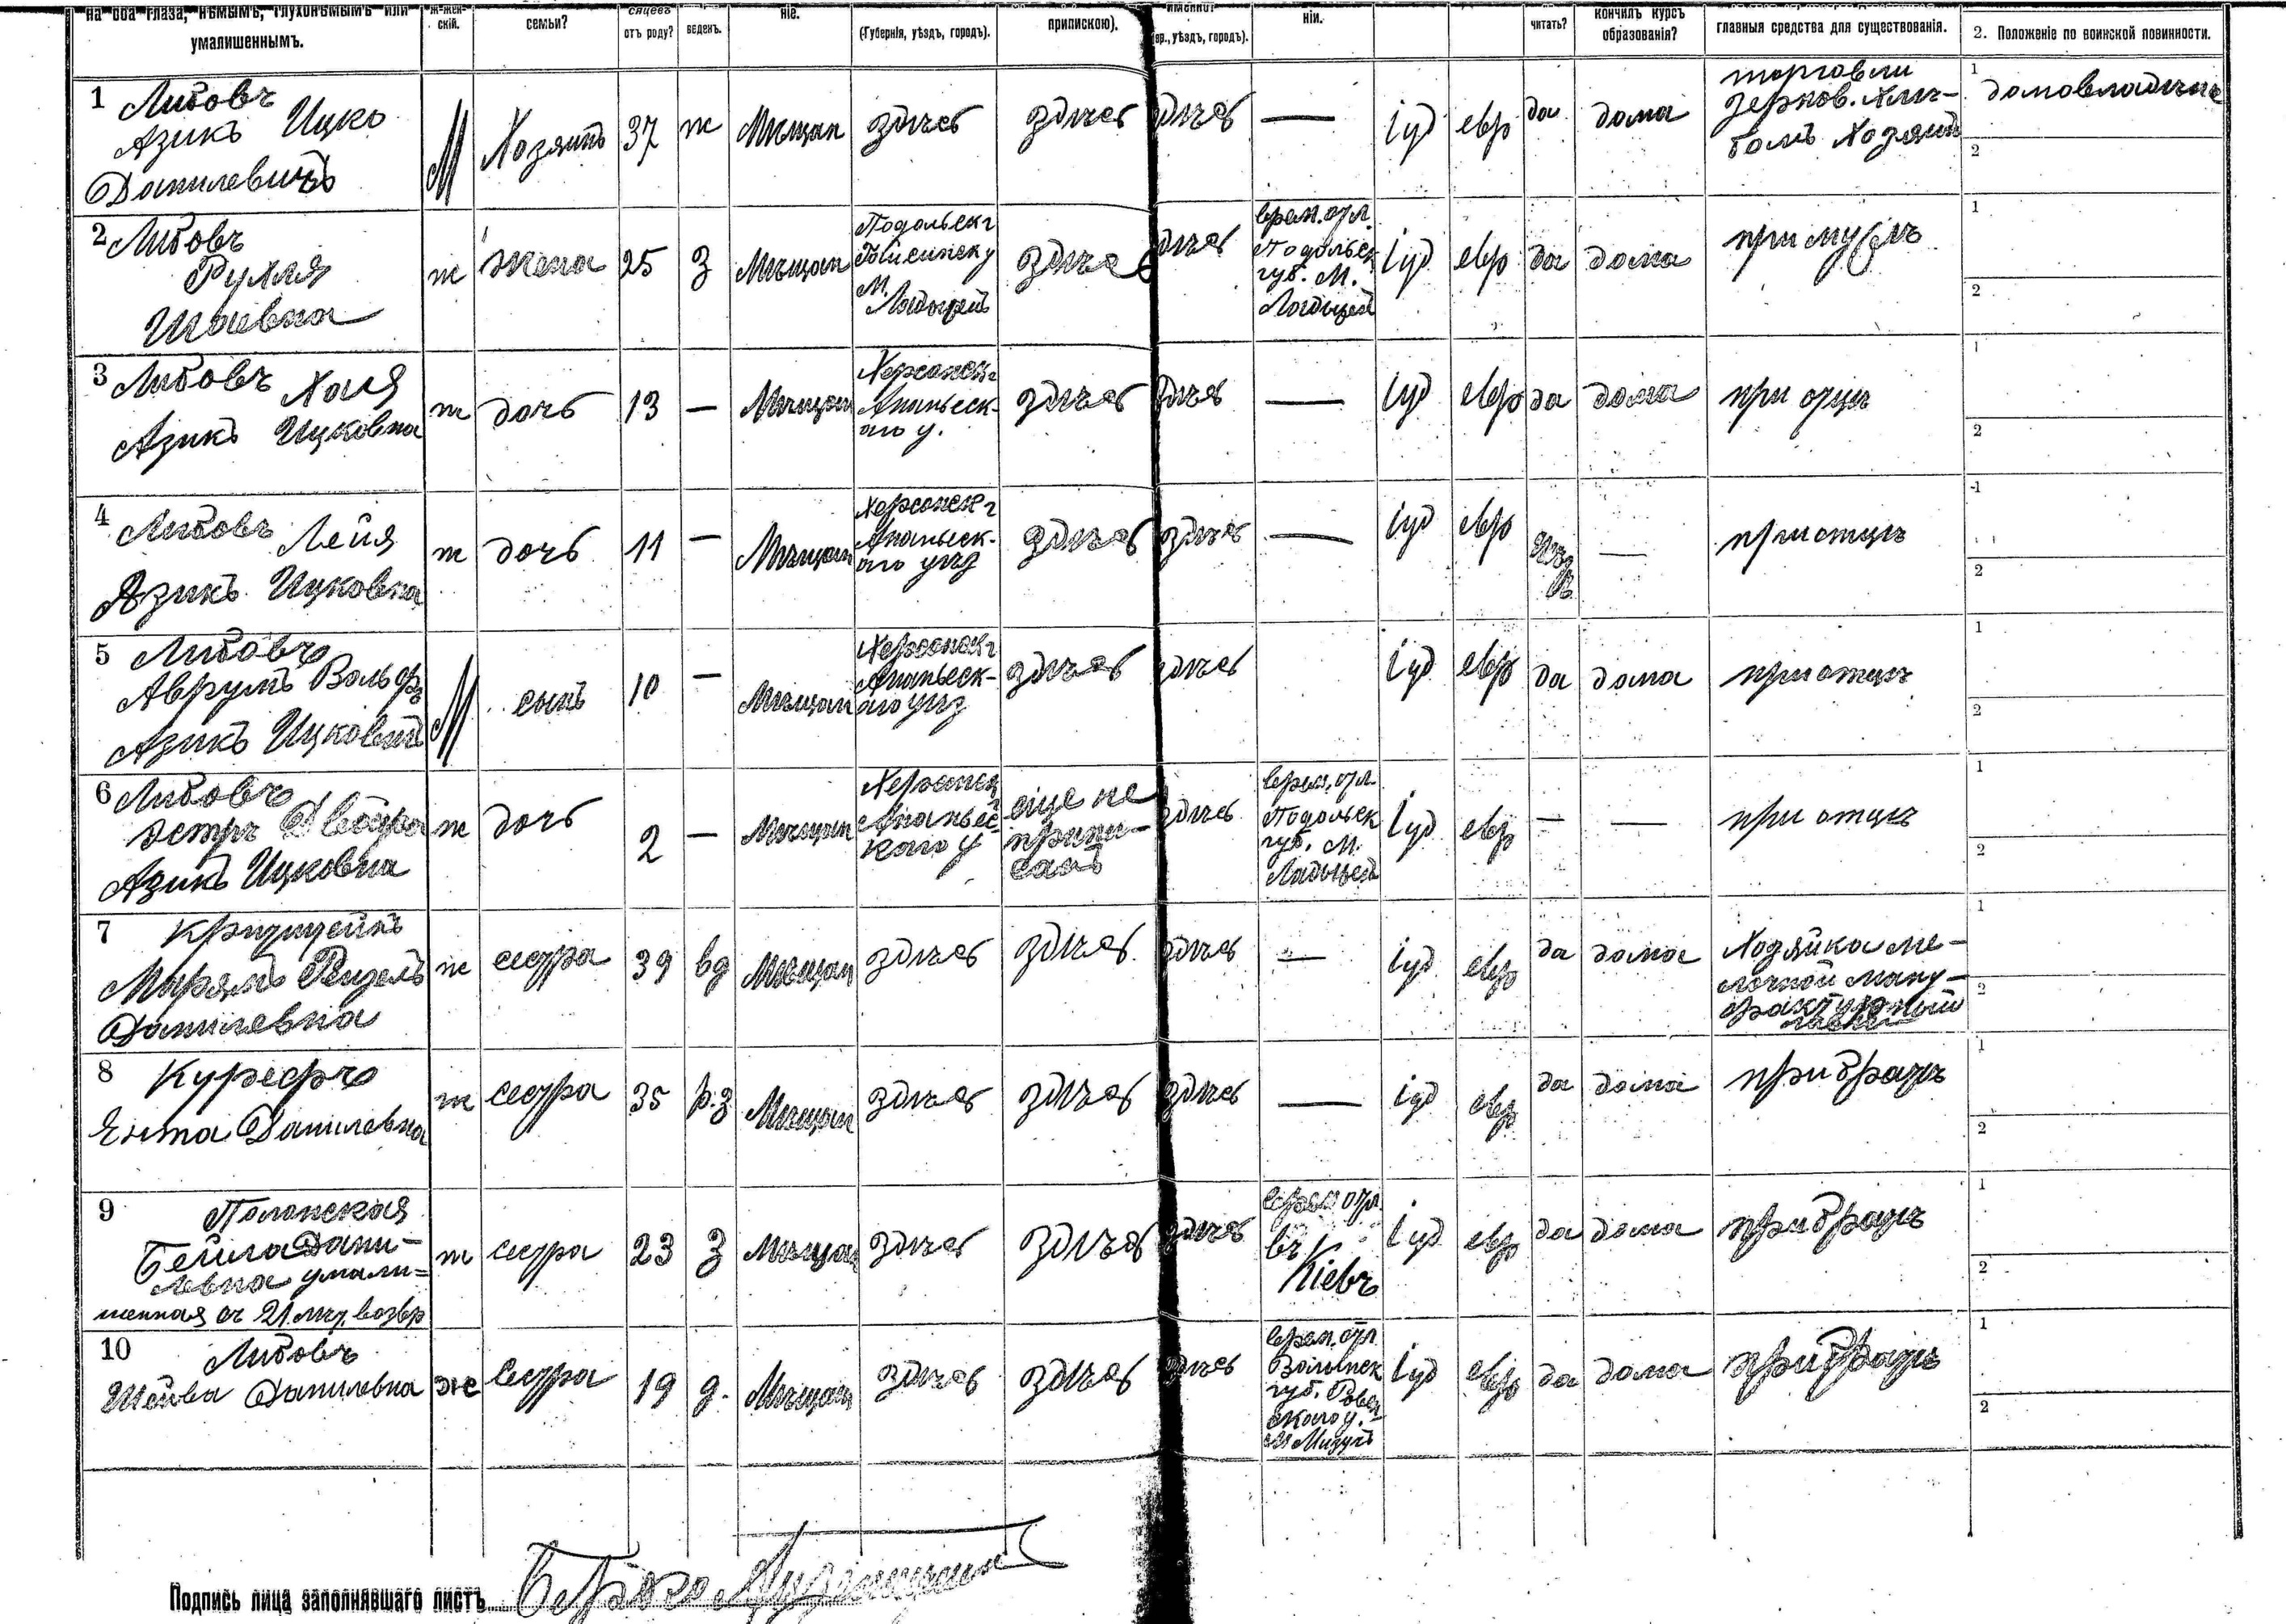 на оба глаза, нѣмымъ, глухонѣмымъ или умалишеннымъ.
ж-жен-скій.
семьи?
сяцевъ отъ роду?
веденъ.
ніе.
(Губернія, уѣздъ, городъ).
припискою).
именно?
уѣздъ, городъ).
ніи.
читать?
кончилъ курсъ образованія?
главныя средства для существованія.
2. Положеніе по воинской повинности.
1 Либовъ
Азикъ Ицко
Данилевичъ
М Хозяинъ 37 ж Мѣщан здѣсь здѣсь здѣсь — іуд евр да дома
торговли
зерков. хлѣ-
бомъ Хозяинъ
1 домовладѣлец
2
2 Либовъ
Рухля
Шаевна
ж жена 25 З Мѣщан
Подольск г
у
м.
Ладыжей
здѣсь здѣсь
врем. отл.
Подольск
губ. м.
Ладыжей
іуд евр да дома при мужѣ
1
2
3 Либовъ Хая
Азикъ Ицковна
ж дочь 13 — Мѣщан
Херсонск г
Ананьеск-
аго у.
здѣсь здѣсь — іуд евр да дома при отцѣ
1
2
4 Либовъ Лейя
Азикъ Ицковна
ж дочь 11 — Мѣщан
Херсонск г
Ананьеск-
аго уѣз
здѣсь здѣсь — іуд евр — при отцѣ
1
2
5 Либовъ
Аврумъ Вольфъ
Азикъ Ицковичъ
М сынъ 10 — Мѣщан
Херсонск г
Ананьеск-
аго уѣз
здѣсь здѣсь іуд евр да дома при отцѣ
1
2
6 Либовъ
Эстръ Двойра
Азикъ Ицковна
ж дочь 2 — Мѣщан
Херсонск
Ананьес-
каго у
еще не
припи-
санъ
здѣсь
врем. отл.
Подольск
губ. м.
Ладыжей
іуд евр — — при отцѣ
1
2
7
Марямъ Рейзель
Данилевна
ж сестра 39 вд Мѣщан здѣсь здѣсь здѣсь — іуд евр да дома
Хозяйка ме-
лочной ману-
фактурной
лавки
1
2
8 Курефъ
Ента Данилевна
ж сестра 35 р.з Мѣщан здѣсь здѣсь здѣсь — іуд евр да дома при братѣ
1
2
9 Полонская
Бейла Дани-
левна умали=
шенная съ 21 лѣт. возвр
ж сестра 23 З Мѣщан здѣсь здѣсь здѣсь
врем отл
въ
Кіевъ
іуд евр да дома при братѣ
1
2
10 Либовъ
Шейва Данилевна
же Сестра 19 д. Мѣщан здѣсь здѣсь здѣсь
врем. отл.
Волынск
губ. Ровен
скаго у.
м Мизучъ
іуд евр да дома при братѣ
1
2
Подпись лица заполнявшаго листъ